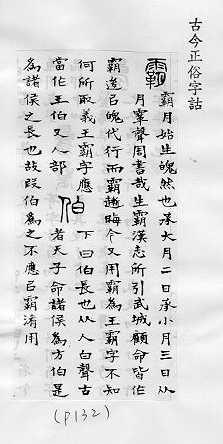 古今正俗字詁
霸
霸月始生魄然也承大月二日承小月三日从
月䨣聲周書哉生霸漢志所引武城顧命皆作
霸後㠯魄代行而霸遂晦今又用霸為王霸字不知
何所取義王霸字應
當作王伯又人部
伯
下曰伯長也从人白聲古
者天子命諸侯為方伯是
為諸侯之長也故叚伯為之不應㠯霸淆用
(P132)